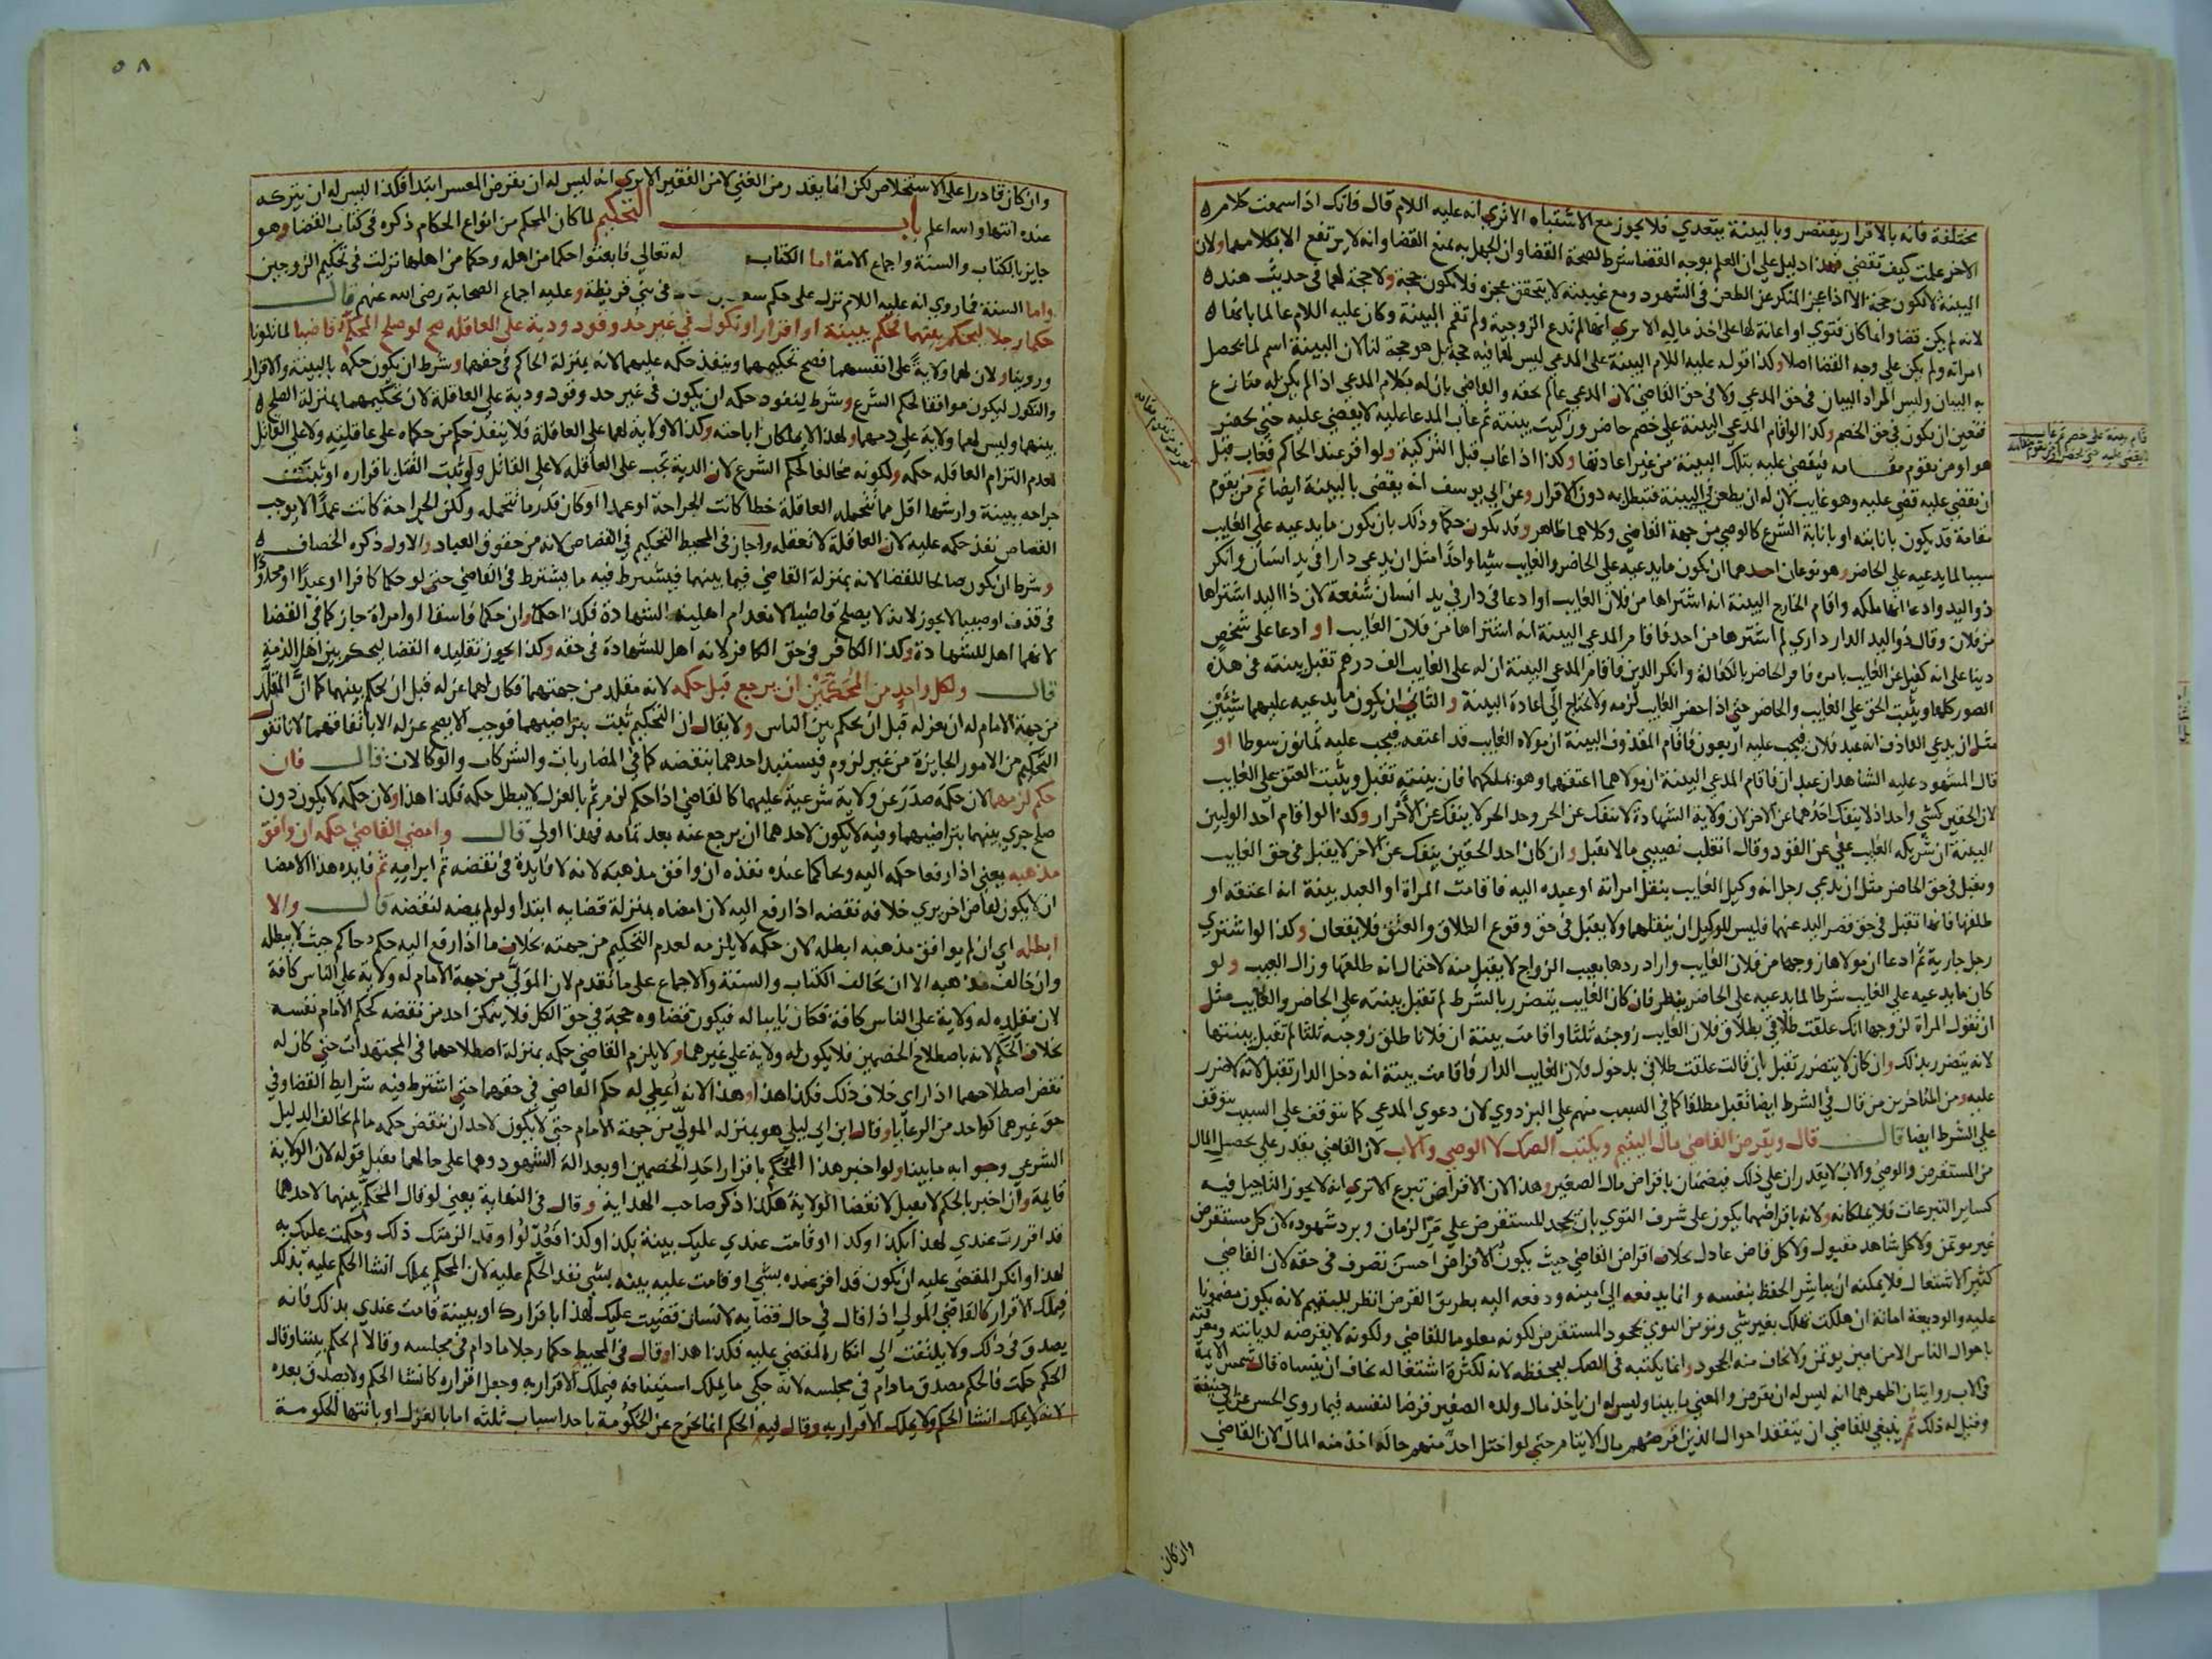 مختلفة فانه بالاقرار يقتصر وبالبينة يتعدي فلا يجوز مع الاشتباه الا تري انه عليه اللام قال فانك اذا سمعت كلام
الاخر علمت كيف تقضي فهذا دليل علي ان العلم بوجه القضا شرط لصحة القضا وان الجهل به يمنع القضا وانه لا يرتفع الا بكلامهما ولان
البينة لا تكون حجة الا اذا عجز المنكر عن الطعن في الشهود ومع غيبته لا يتحقق عجزه فلا تكون حجة ولا حجة لهما في حديث هند
لانه لم يكن قضا وانما كان فتوي او اعانة لها علي اخذ ماله الا تري انها لم تدع الزوجية ولم تقم البينة وكان عليه اللام عالما بانها
امراته ولم يكن علي وجه القضا اصلا وكذا قوله عليه اللام البينة علي المدعي ليس لهما فيه حجة بل هو حجة لنا لان البينة اسم لما يحصل
به البيان وليس المراد البيان في حق المدعي ولا في حق القاضي لان المدعي عالم بحقه والقاضي بان له بكلام المدعي اذا لم يكن له منازع
فتعين ان يكون في حق الخصم وكذا لو اقام المدعي البينة علي خصم حاضر وزكيت بينته ثم غاب المدعا عليه لا يقضي عليه حتي يحضر
هو او من يقوم مقامه فيقضي عليه بتلك البينة من غير اعادتها وكذا اذا غاب قبل التزكية ولو اقر عند الحاكم فغاب قبل
ان يقضي عليه قضي عليه وهو غايب لان له ان يطعن في البينة فتبطل به دون الاقرار وعن ابي يوسف انه يقضي بالبينة ايضا ثم من يقوم
مقامه قد يكون بانابته او بانابة الشرع كالوصي من جهة القاضي وكلاهما ظاهر وقد يكون حكما وذلك بان يكون ما يدعيه علي الغايب
سببا لما يدعيه علي الحاضر وهو نوعان احدهما ان يكون ما يدعيه علي الحاضر والغايب شيا واحدا مثل ان يدعي دارا في يد انسان وانكر
ذو اليد وادعا انها ملكه واقام الخارج البينة انه اشتراها من فلان الغايب او ادعا في دار في يد انسان شفعة لان ذا اليد اشتراها
من فلان وقال ذو اليد الدار داري لم اشترها من احد فاقام المدعي البينة انه اشتراها من فلان الغايب او ادعا علي شخص
دينا علي انه كفيل عن الغايب بامره فاقر الحاضر بالكفالة وانكر الدين فاقام المدعي البينة ان له علي الغايب الف درهم تقبل بينته في هذه
الصور كلها ويثبت الحق علي الغايب والحاضر حتي اذا حضر الغايب لزمه ولا يحتاج الي اعادة البينة والثاني ان يكون ما يدعيه عليهما شيئين
مثل ان يدعي القاذف انه عبد فلان فيجب عليه اربعون فاقام المقذوف البينة ان مولاه الغايب قد اعتقه فيجب عليه ثمانون سوطا او
قال المشهود عليه الشاهدان عبدان فاقام المدعي البينة ان مولاهما اعتقهما وهو يملكهما فان بينته تقبل ويثبت العتق علي الغايب
لان الحقين كشي واحد اذ لا ينفك احدهما عن الاخر لان ولاية الشهادة لا تنفك عن الحر وحد الحر لا ينفك عن الاحرار وكذا لو اقام احد الوليين
البينة ان شريكه الغايب عفي عن القود وقال انقلب نصيبي مالا تقبل وان كان احد الحقين ينفك عن الاخر لا يقبل في حق الغايب
ويقبل في حق الحاضر مثل ان يدعي رجل انه وكيل الغايب بنقل امراته او عبده اليه فاقامت المراة او العبد بينة انه اعتقه او
طلقها فانها تقبل في حق قصر اليد عنهما فليس للوكيل ان ينقلهما ولا يقبل في حق وقوع الطلاق والعتق فلا يقعان وكذا لو اشتري
رجل جارية ثم ادعا ان مولاها زوجها من فلان الغايب واراد ردها بعيب الزواج لا يقبل منه لاحتمال انه طلقها وزال العيب ولو
كان ما يدعيه علي الغايب شرطا لما يدعيه علي الحاضر ينظر فان كان الغايب يتضرر بالشرط لم تقبل بينته علي الحاضر والغايب مثل
ان تقول المراة لزوجها انك علقت طلاقي بطلاق فلان الغايب زوجته ثلثا واقامت بينة ان فلانا طلق زوجته ثلثا لم تقبل بينتها
لانه يتضرر بذلك وان كان لا يتضرر تقبل بان قالت علقت طلاقي بدخول فلان الغايب الدار فاقامت بينة انه دخل الدار تقبل لانه لا ضرر
عليه ومن المتاخرين من قال في الشرط ايضا تقبل مطلقا كما في السبب منهم علي البزدوي لان دعوي المدعي كما تتوقف علي السبب تتوقف
علي الشرط ايضا قال قال ويقرض القاضي مال اليتيم ويكتب الصك لا الوصي والاب لان القاضي يقدر علي تحصيل المال
من المستقرض والوصي والاب لا يقدران علي ذلك فيضمنان باقراض مال الصغير وهذا لان الاقراض تبرع الا تري انه لا يجوز التاجيل فيه
كساير التبرعات فلا يملكانه ولانه باقراضهما يكون علي شرف التوي بان يجحد المستقرض علي مر الزمان ويرد شهوده لان كل مستقرض
غير موتمن ولا كل شاهد مقبول ولا كل قاض عادل بخلاف اقراض القاضي حيث يكون الاقراض احسن تصرف في حقه لان القاضي
كثير الاشتغال فلا يمكنه ان يباشر الحفظ بنفسه وانما يدفعه الي امينه ودفعه اليه بطريق القرض انظر لليتيم لانه يكون مضمونا
عليه والوديعة امانة ان هلكت تهلك بغير شي ونومن التوي بجحود المستقرض لكونه معلوما للقاضي ولكونه لا يقرضه لديانته ومعرفته
باحوال الناس الا من امين يوتمن ولا يخاف منه الجحود وانما يكتبه في الصك ليحفظه لانه لكثرة اشتغاله يخاف ان ينساه قال شمس الايمة
في الاب روايتان اظهرهما انه ليس له ان يقرض والمعني ما بينا وليس له ان ياخذ مال ولده الصغير قرضا لنفسه فيما روي الحسن عن ابي حنيفة
وقيل له ذلك ثم ينبغي للقاضي ان يتفقد احوال الذين اقرضهم مال الايتام حتي لو اختل احد منهم حاله اخذ منه المال لان القاضي
وان كان
قام بينة علي خصم ثم غاب
لا يقضي عليه حتي يحضر او من يقوم مقامه
٥٨
وان كان قادرا علي الاستخلاص لكن انما يقدر من الغني لا من الفقير الا تري انه ليس له ان يقرض المعسر ابتدا فكذا ليس له ان يتركه
عنده انتها والله اعلم باب التحكيم لما كان المحكم من انواع الحكام ذكره في كتاب القضا وهو
جايز بالكتاب والسنة واجماع الامة اما الكتاب له تعالي فابعثوا حكما من اهله وحكما من اهلها نزلت في تحكيم الزوجين
واما السنة فما روي انه عليه اللام نزل علي حكم سعد في بني قريظة وعليه اجماع الصحابة رضي الله عنهم قال
حكما رجلا ليحكم بينهما فحكم ببينة او اقرار او نكول في غير حد وقود ودية علي العاقلة صح لو صلح المحكم قاضيا لما تلونا
وروينا ولان لهما ولاية علي انفسهما فصح تحكيمهما وينفذ حكمه عليهما لانه بمنزلة الحاكم في حقهما وشرط ان يكون حكمه بالبينة والاقرار
والنكول ليكون موافقا لحكم الشرع وشرط لينفوذ حكمه ان يكون في غير حد وقود ودية علي العاقلة لان تحكيمهما بمنزلة الصلح
بينهما وليس لهما ولاية علي دمهما ولهذا لا يملكان اباحته وكذا لا ولاية لهما علي العاقلة فلا ينفذ حكم من حكماه علي عاقلته ولا علي القاتل
لعدم التزام العاقله حكمه ولكونه مخالفا لحكم الشرع لان الدية تجب علي العاقله لا علي القاتل ولو ثبت القتل باقراره او ثبتت
جراحه ببينة وارشها اقل مما تتحمله العاقلة خطا كانت الجراحة او عمدا او كان قدر ما تتحمله ولكن الجراحة كانت عمدا لا يوجب
القصاص نفذ حكمه عليه لان العاقلة لا تعقله واجاز في المحيط التحكيم في القصاص لانه من حقوق العباد والاول ذكره الخصاف
وشرط ان يكون صالحا للقضا لانه بمنزلة القاضي فيما بينهما فيشترط فيه ما يشترط في القاضي حتي لو حكما كافرا او عبدا او محدودا
في قذف او صبيا لا يجوز لانه لا يصلح قاضيا لانعدام اهلية الشهادة فكذا حكما وان حكما فاسقا او امراة جاز كما في القضا
لانهما اهل للشهادة وكذا الكافر في حق الكافر لانه اهل للشهادة في حقه وكذا يجوز تقليده القضا ليحكم بين اهل الذمة
قال ولكل واحد من المحكمين ان يرجع قبل حكمه لانه مقلد من جهتهما فكان لهما عزله قبل ان يحكم بينهما كما ان المقلد
من جهة الامام له ان يعزله قبل ان يحكم بين الناس ولا يقال ان التحكيم ثبت بتراضيهما فوجب الا يصح عزله الا باتفاقهما لانا نقول
التحكيم من الامور الجايزة من غير لزوم فيستبد احدهما بنقضه كما في المضاربات والشركات والوكالات قال فان
حكم لزمهما لان حكمه صدر عن ولاية شرعية عليهما كالقاضي اذا حكم لزم ثم بالعزل لا يبطل حكمه فكذا هذا ولان حكمه لا يكون دون
صلح جري بينهما بتراضيهما وفيه لا يكون لاحدهما ان يرجع عنه بعد تمامه فهذا اولي قال وامضي القاضي حكمه ان وافق
مذهبه يعني اذا رفعا حكمه اليه وتحاكما عنده نفذه ان وافق مذهبه لانه لا فايدة في نقضه ثم ابرامه ثم فايده هذا الامضا
ان لا يكون لقاض اخر يري خلافه نقضه اذا رفع اليه لان امضاه بمنزلة قضايه ابتدا ولو لم يمضه لنقضه قال والا
ابطله اي ان لم يوافق مذهبه ابطله لان حكمه لا يلزمه لعدم التحكيم من جهته بخلاف ما اذا رفع اليه حكم حاكم حيث لا يبطله
وان خالف مذهبه الا ان يخالف الكتاب والسنة والاجماع علي ما تقدم لان المولي من جهة الامام له ولاية علي الناس كافة
لان مقلده له ولاية علي الناس كافة فكان نايبا له فيكون قضاوه حجة في حق الكل فلا يتمكن احد من نقضه كحكم الامام نفسه
بخلاف المحكم لانه باصطلاح الخصمين فلا يكون له ولاية علي غيرهما ولا يلزم القاضي حكمه بمنزلة اصطلاحهما في المجتهدات حتي كان له
نقض اصطلاحهما اذا راي خلاف ذلك فكذا هذا وهذا لانه اعطي له حكم القاضي في حقهما حتي اشترط فيه شرايط القضا وفي
حق غيرهما كواحد من الرعايا وقال ابن ابي ليلي هو بمنزله المولي من جهة الامام حتي لا يكون لاحد ان ينقض حكمه ما لم يخالف الدليل
الشرعي وجوابه ما بينا ولو اخبر هذا المحكم باقرار احد الخصمين او بعدالة الشهود وهما علي حالهما يقبل قوله لان الولاية
قايمة وان اخبر بالحكم لا يقبل لانقضا الولاية هكذا ذكر صاحب الهداية وقال في النهاية يعني لو قال المحكم بينهما لاحدهما
قد اقررت عندي لهذا بكذا وكذا او قامت عندي عليك بينة بكذا وكذا فعدلوا وقد الزمتك ذلك وحكمت عليك به
لهذا وانكر المقضي عليه ان يكون قد اقر عنده بشي او قامت عليه بينه بشي نفذ الحكم عليه لان المحكم يملك انشا الحكم عليه بذلك
فيملك الاقرار كالقاضي المولي اذا قال في حال قضايه لانسان قضيت عليك لهذا باقرارك او ببينة قامت عندي بذلك فانه
يصدق في ذلك ولا يلتفت الي انكار المقضي عليه فكذا هذا وقال في المحيط حكما رجلا ما دام في مجلسه وقالا لم تحكم بيننا وقال
الحكم حكمت فالحكم مصدق ما دام في مجلسه لانه حكي ما يملك استينافه فيملك الاقرار به وجعل اقراره كانشا الحكم ولا يصدق بعده
لانه لا يملك انشا الحكم ولا يملك الاقرار به وقال فيه الحكم انما يخرج عن الحكومة باحد اسباب ثلثه اما بالعزل او بانتها الحكومة